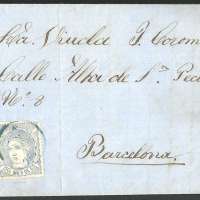 Sra. Viuda J. Corom
Calle Alta de Sn. Ped
No. 8
Barcelona.